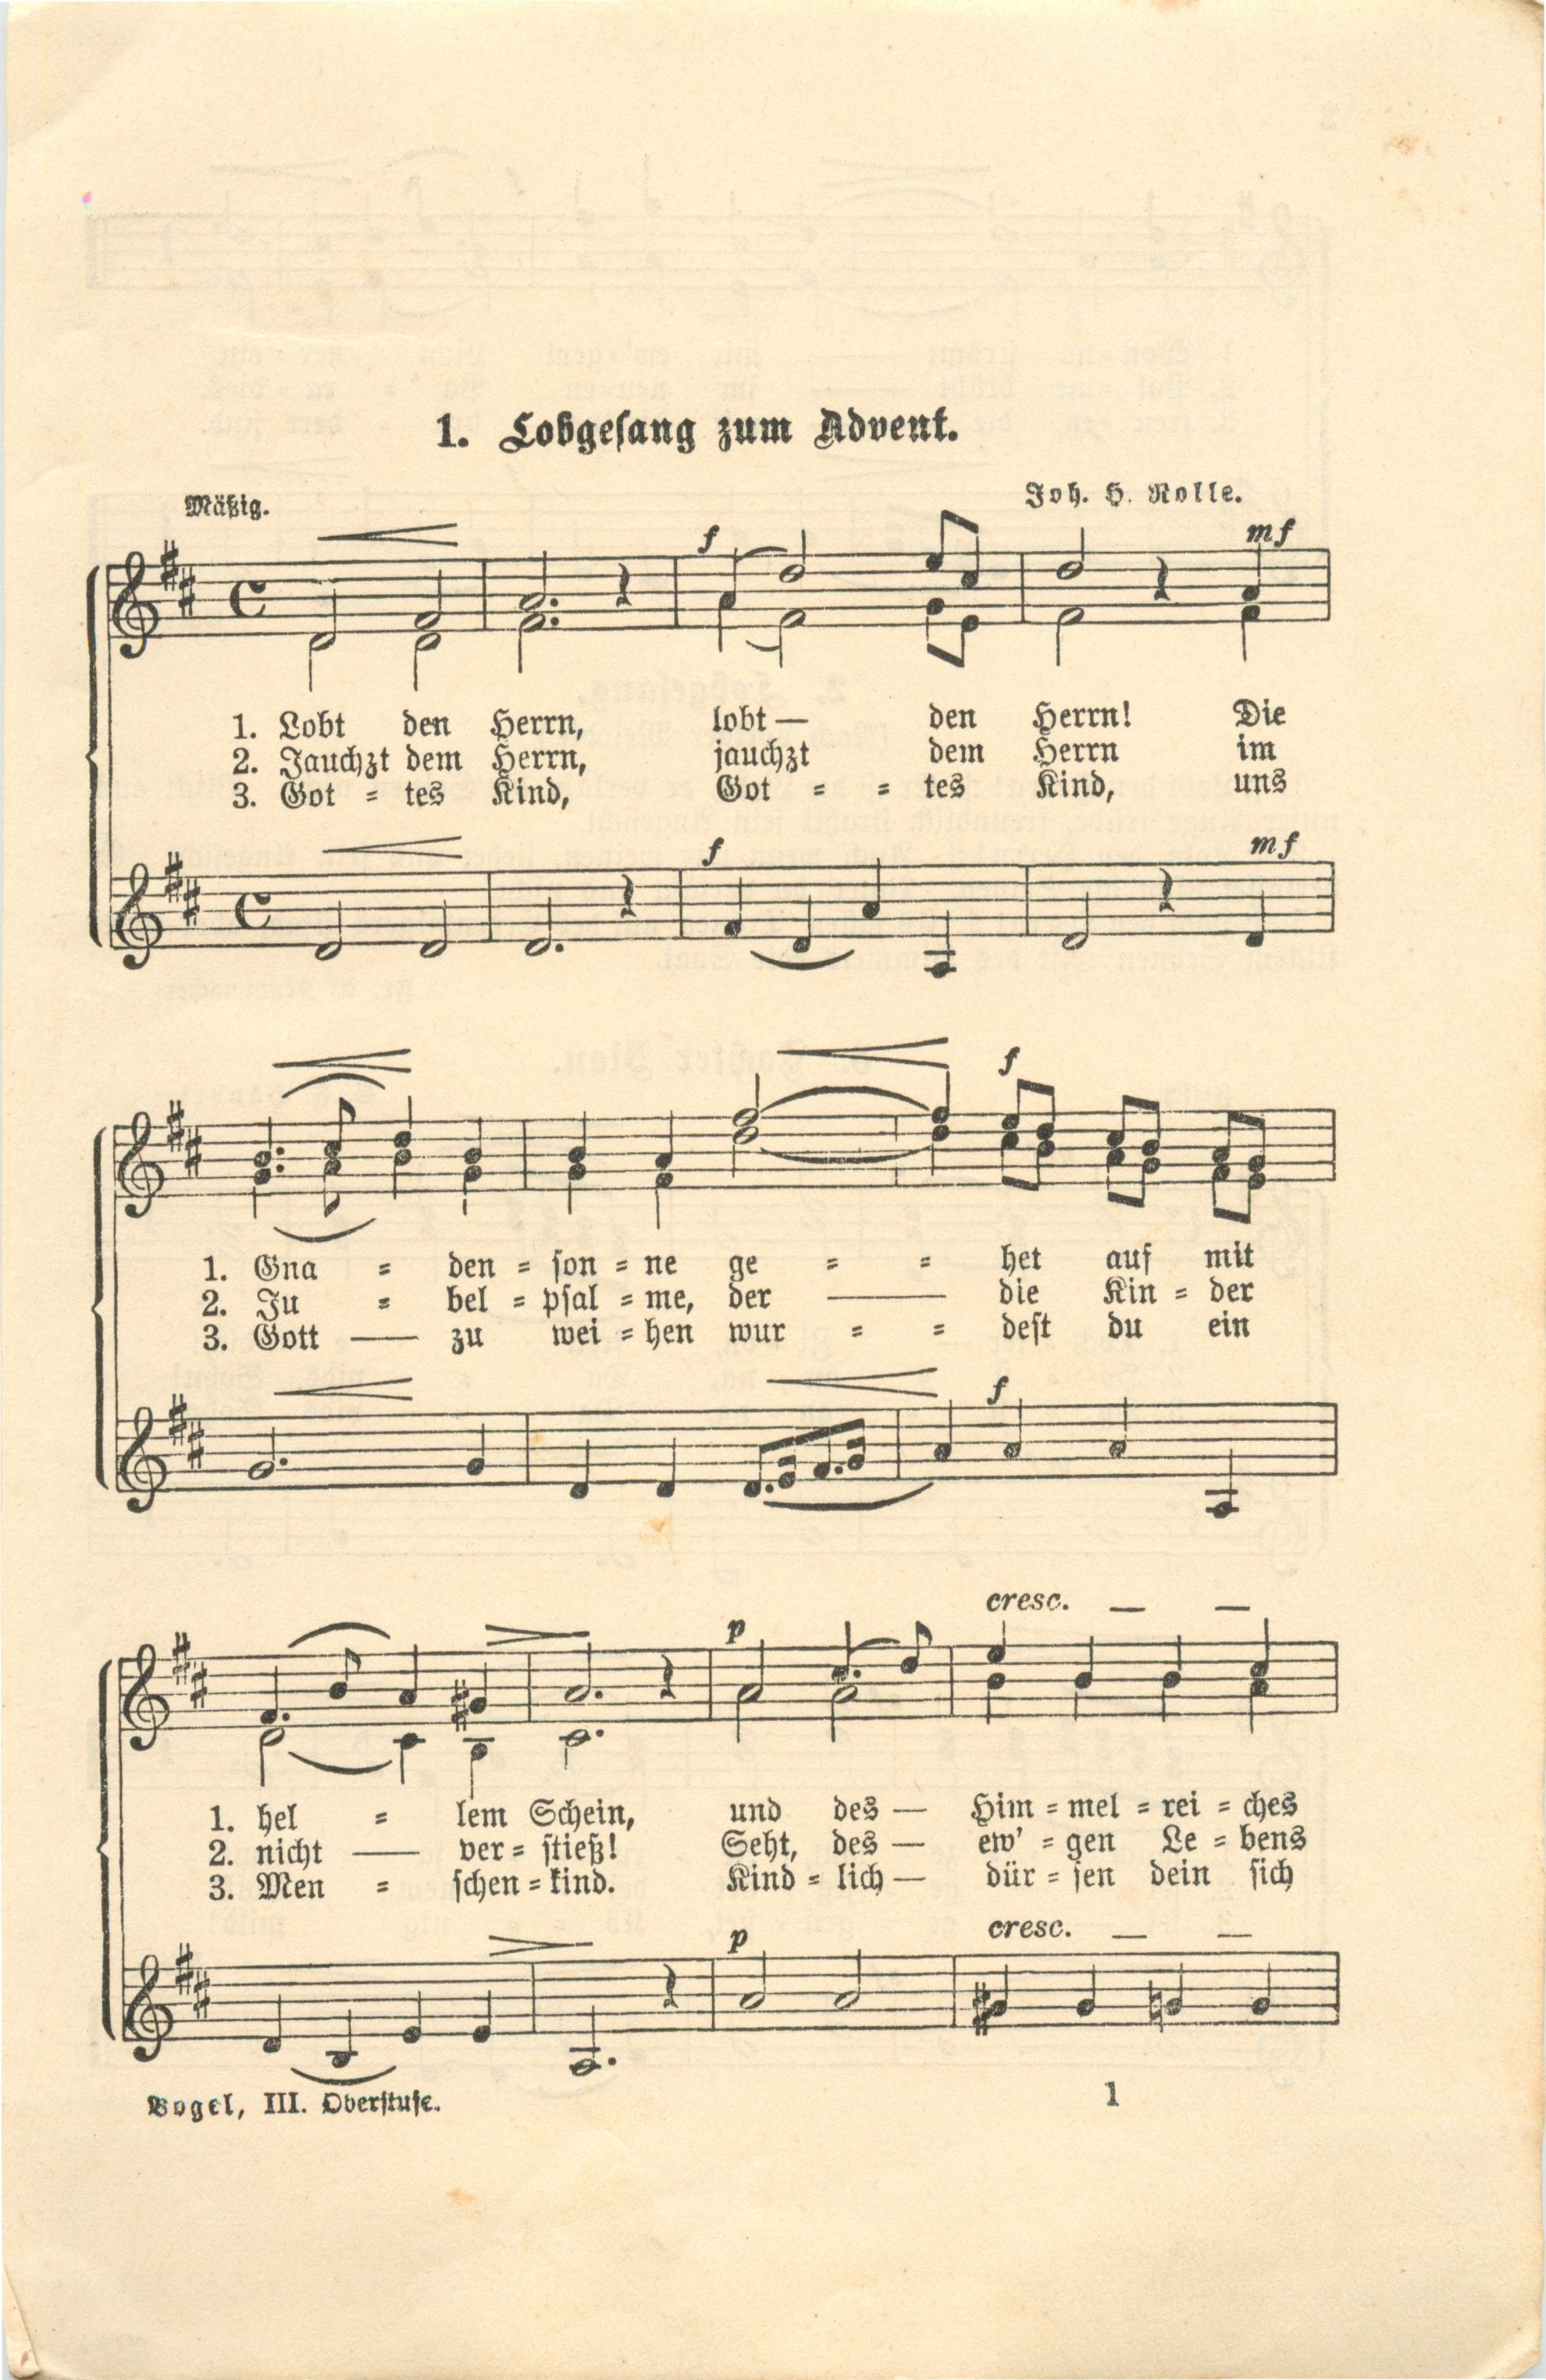 1. Lobgesang zum Advent.
Mäßig.
Joh. H. Rolle.
f
mf
1. Lobt den Herrn, lobt — den Herrn! Die
2. Jauchzt dem Herrn, jauchzt dem Herrn im
3. Got = tes Kind, Got = = tes Kind, uns
f
mf
f
1. Gna = den = son = ne ge = = het auf mit
2. Ju = bel = psal = me, der —— die Kin = der
3. Gott — zu wei = hen wur = = dest du ein
f
cresc. — —
p
1. hel = lem Schein, und des — Him = mel = rei = ches
2. nicht — ver = stieß! Seht, des — ew' = gen Le = bens
3. Men = schen = kind. Kind = lich — dür = fen dein sich
p
cresc. — —
Vogel, III. Oberstufe.
1